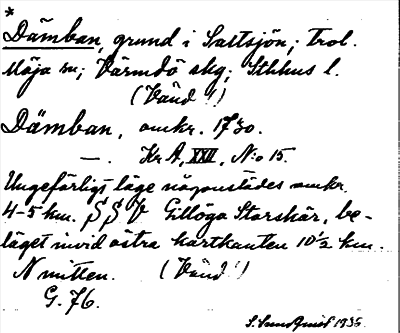 *
Dämban, grund i Saltsjön; trol.
Möja sn; Värmdö skg; Sthlms l.
(Vänd!)
Dämban, omkr. 1730.
—. Kr A, XXII, N:o 15.
Ungefärligt läge någonstädes omkr.
4-5 km. S S V Gillöga Storskär, be-
läget invid östra kartkanten 10½ km.
N mitten. (Vänd!)
G. 76.
S. Sundquist 1935.